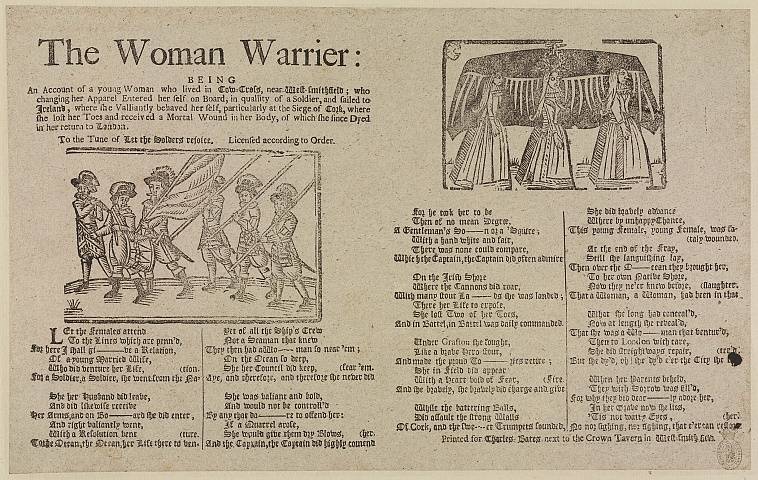 The Woman Warrier:
BEING
An Account of a young Woman who lived in Cow-Cross, near West-smithfield; who
changing her Apparel Entered her self on Board, in quality of a Soldier, and sailed to
Ireland, where she Valliantly behaved her self, particularly at the Siege of Cork, where
she lost her Toes and received a Mortal Wound in her Body, of which she since Dyed
in her return to London.
To the Tune of Let the Soldiers rejoice. Licensed according to Order.
LEt the Females attend
To the Lines which are penn'd,
For here I shall gi——ve a Relation,
Of a young Married Wife,
Who did venture her Life,
For a Soldier, a Soldier, she went from the Na-
(tion.
She her Husband did leave,
And did likewise receive
Her Arms, and on Bo——ard she did enter,
And right valiantly went,
With a Resolution bent
To the Ocean, the Ocean, her Life there to ven-
(ture.
Yet of all the Ship's Crew
Not a Seaman that knew
They then had a Wo——man so near 'em;
On the Ocean so deep,
She her Council did keep,
Aye, and therefore, and therefore she never did
(fear 'em.
She was valiant and bold,
And would not be controll'd
By any that da——re to offend her:
If a Quarrel arose,
She would give them dry Blows,
And the Captain, the Captain did highly commend
(her.
For he took her to be
Then of no mean Degree,
A Gentleman's So——n or a 'Squire;
With a hand white and fair,
There was none could compare,
Which the Captain, the Captain did often admire
On the Irish Shore
Where the Cannons did roar,
With many stout La——ds she was landed;
There her Life to expose,
She lost Two of her Toes,
And in Battel, in Battel was daily commanded.
Under Grafton she fought,
Like a brave Hero stout,
And made the proud To——ries retire;
She in Field did appear
With a Heart void of Fear,
And she bravely, she bravely did charge and give
(Fire.
While the battering Balls,
Did assault the strong Walls
Of Cork, and the swe——et Trumpets sounded,
She did bravely advance
Where by unhappy Chance,
This young Female, young Female, was fa-
(tally wounded.
At the end of the Fray,
Still she languishing lay,
Then over the O——cean they brought her,
To her own Native Shore,
Now they ne'er knew before,
That a Woman, a Woman, had been in that
(slaughter.
What she long had conceal'd,
Now at length she reveal'd,
That she was a Wo——man that ventur'd,
Then to London with care,
She did streightways repair,
But she dy'd, oh she dy'd e'er the City she
When her Parents beheld,
They with Sorrow was fill'd,
For why they did dear——ly adore her,
In her Grave now she lies,
'Tis not watry Eyes,
No nor sighing, nor sighing, that e'er can restore
(her.
Printed for Charles Bates next to the Crown Tavern in West-smithfield.